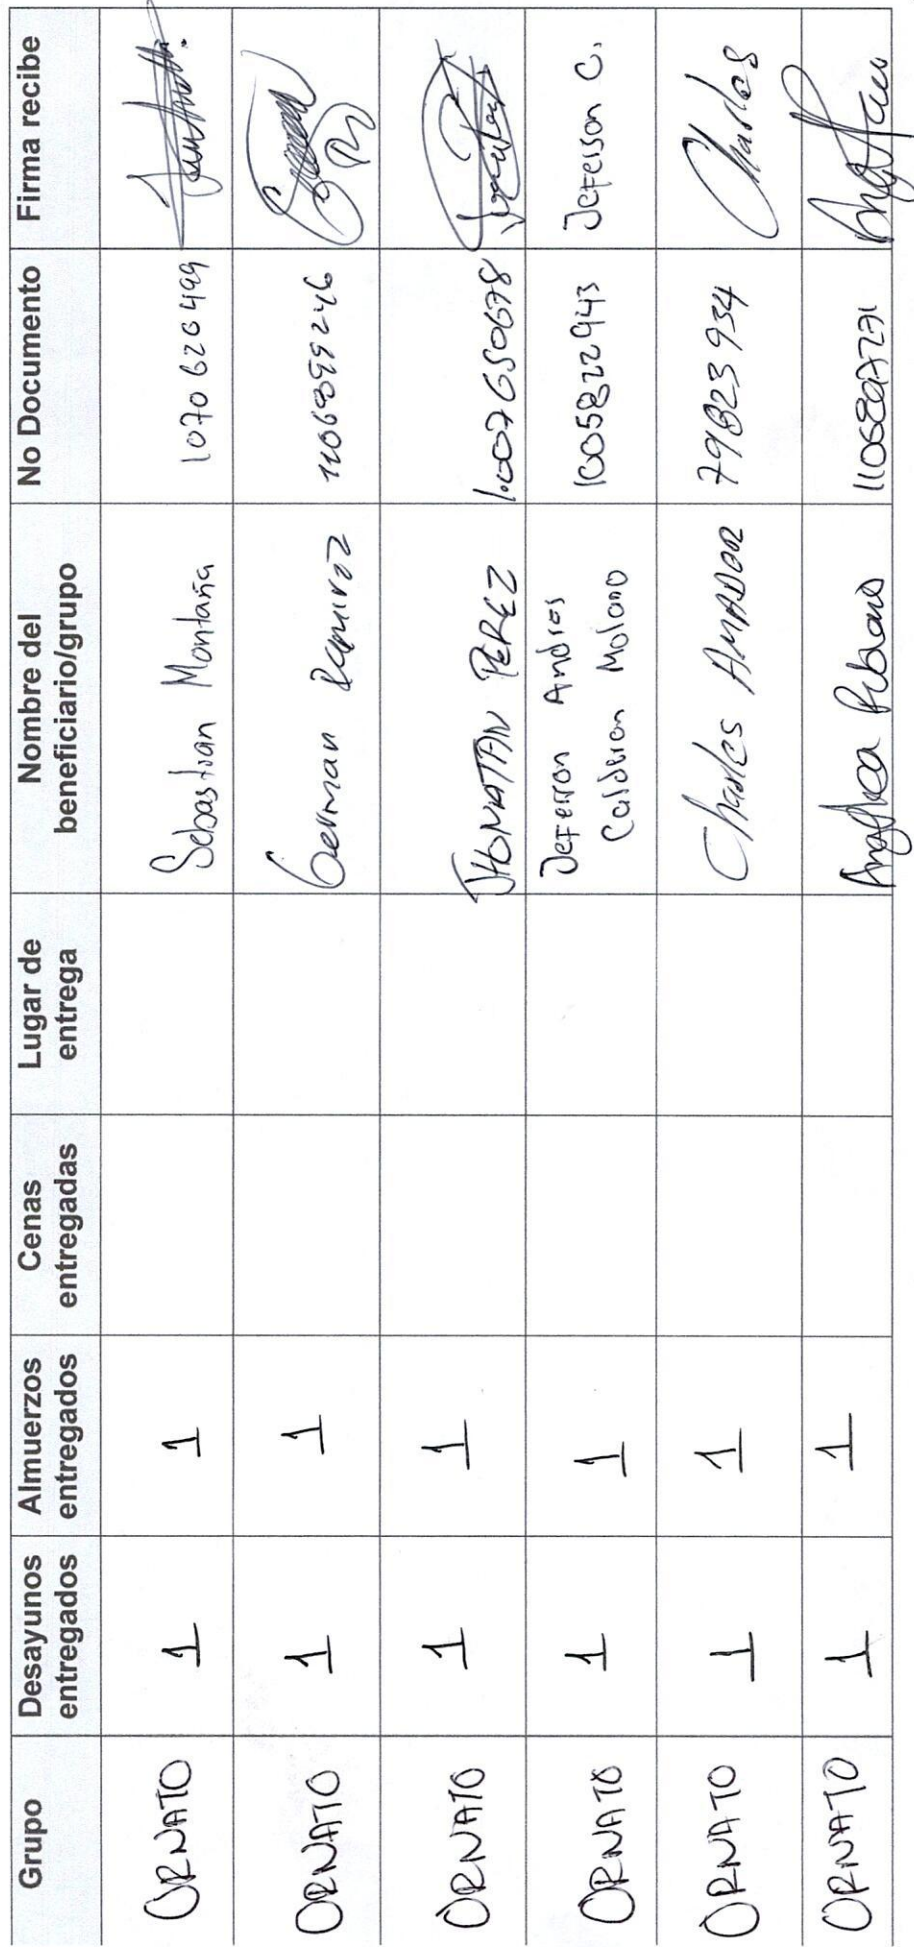 Grupo
Desayunos
entregados
Almuerzos
entregados
Cenas
entregadas
Lugar de
entrega
Nombre del
beneficiario/grupo
No Documento
Firma recibe
ORNATO 1 1 Sebastian Montaña 1070620499
ORNATO 1 1 German Ramirez 1106899246
ORNATO 1 1 JHONATAN PEREZ 1.007650678
ORNATO 1 1 Jeferson Andres
Calderon Molano 1005822943 Jeferson C.
ORNATO 1 1 Charles AMADOR 79823934 Charles
ORNATO 1 1 Angelica